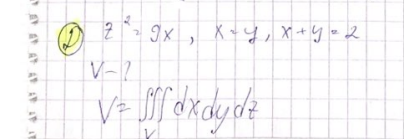 2) z² = 9x, x = y, x + y = 2
V - ?
V = ∭ dxdydz
V